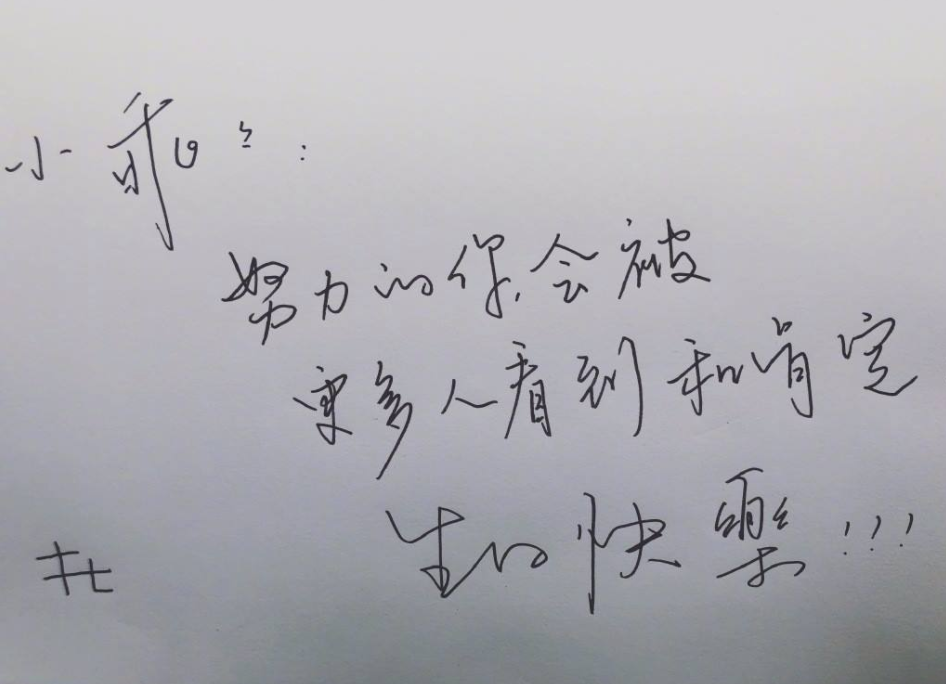 小乖〻:
努力的你,会被
更多人看到和肯定
生日快樂!!!